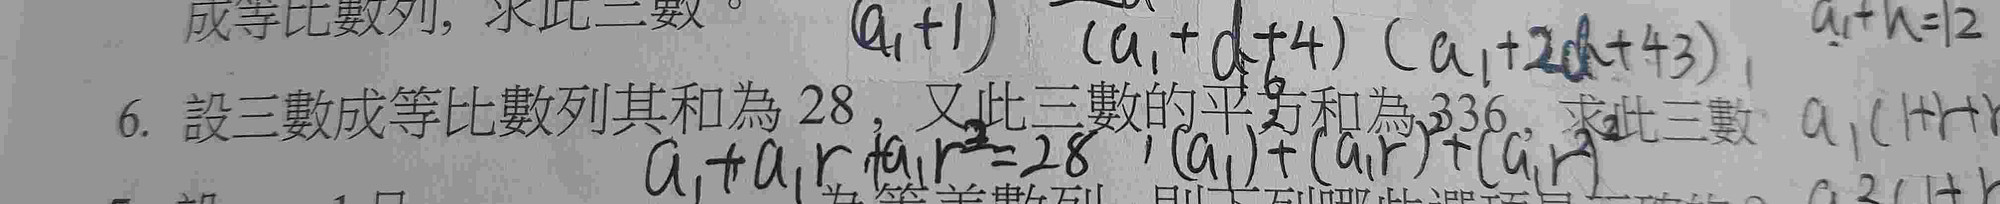 成等比數列, 求此三數。 (a₁+1) (a₁+d+4) (a₁+2d+43) a₁+n=12
6. 設三數成等比數列其和為 28, 又此三數的平方和為 336, 求此三數 a₁(1+r+r
a₁+a₁r+a₁r²=28, (a₁)²+(a₁r)²+(a₁r²)²